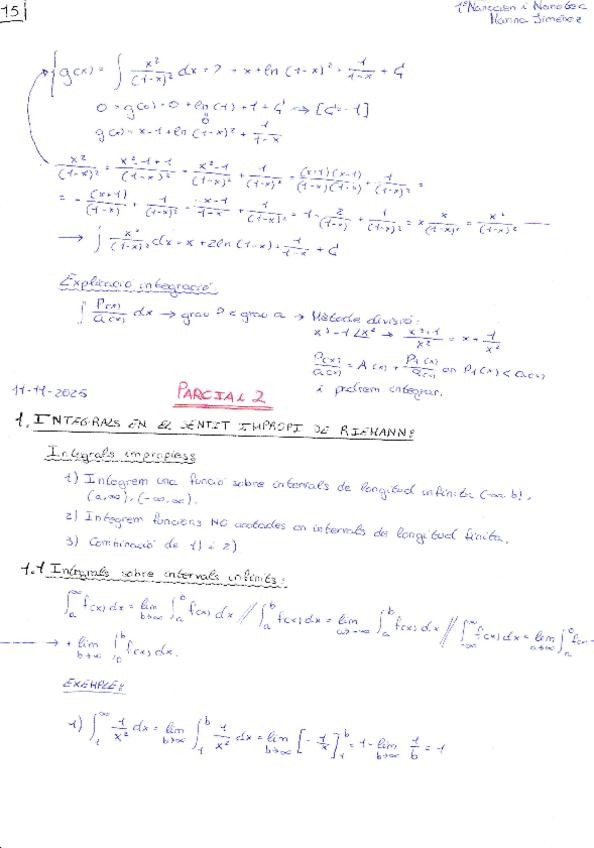 15
1º Nanocièn i Nanotec
Marina Jiménez
g(x) = ∫ x²/(1-x)² dx = ? = x + ln(1-x)² + 1/(1-x) + C
0 = g(0) = 0 + ln(1) + 1 + C → [C = -1]
0
g(x) = x - 1 + ln(1-x)² + 1/(1-x)
x²/(1-x)² = (x²-1+1)/(1-x)² = (x²-1)/(1-x)² + 1/(1-x)² = (x+1)(x-1)/(1-x)(1-x) + 1/(1-x)² =
= -(x+1)/(1-x) + 1/(1-x)² = (-x-1)/(1-x) + 1/(1-x)² = 1 - 2/(1-x) + 1/(1-x)² = x²/(1-x)²
→ ∫ x²/(1-x)² dx = x + 2ln(1-x) + 1/(1-x) + C
Explicació integració.
∫ P(x)/Q(x) dx → grau P < grau Q → Mètode divisió:
x³-1 ∠x² → (x³+1)/x² = x + 1/x²
P(x)/Q(x) = A(x) + P₁(x)/Q(x) on P₁(x) < Q(x)
i podrem integrar.
11-11-2025
PARCIAL 2
1. INTEGRALS EN EL SENTIT IMPROPI DE RIEMANN:
Integrals impropiess
1) Integrem una funció sobre intervals de longitud infinita (-∞, b),
(a, ∞), (-∞, ∞).
2) Integrem funcions NO acotades en intervals de longitud finita.
3) Combinació de 1) i 2)
1.1 Integrals sobre intervals infinits:
∫ₐ^∞ f(x) dx = lim b→∞ ∫ₐ^b f(x) dx // ∫ₐ^b f(x) dx = lim a→-∞ ∫ₐ^b f(x) dx // ∫₋∞^∞ f(x) dx = lim a→∞ ∫ₐ^0 f(x)
→ + lim b→∞ ∫₀^b f(x) dx.
EXEMPLE:
1) ∫₁^∞ 1/x² dx = lim b→∞ ∫₁^b 1/x² dx = lim b→∞ [-1/x]₁^b = 1 - lim b→∞ 1/b = 1